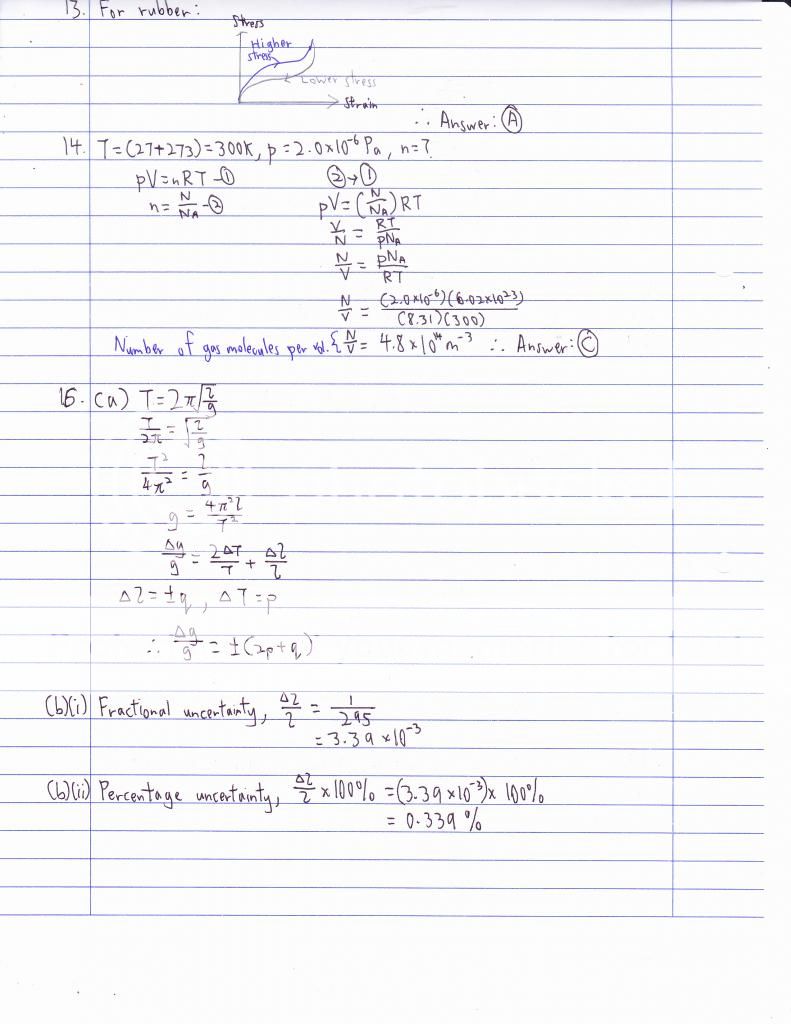 13. For rubber:
Stress
Higher
stress
Lower stress
Strain
∴ Answer: Ⓐ
14. T=(27+273)=300K, p=2.0×10⁻⁶ Pa, n=?
pV=nRT-①
②→①
n=N/NA-②
pV=(N/NA)RT
V/N = RT/pNA
N/V = pNA/RT
N/V = (2.0×10⁻⁶)(6.02×10²³)/(8.31)(300)
Number of gas molecules per vol. { N/V = 4.8×10¹⁴ m⁻³ ∴ Answer: Ⓒ
15. (a) T=2π√(l/g)
T/2π = √(l/g)
T²/4π² = l/g
g = 4π²l/T²
Δg/g = 2ΔT/T + Δl/l
Δl = ±q, ΔT=p
∴ Δg/g = ±(2p+q)
(b)(i) Fractional uncertainty, Δl/l = 1/295
= 3.39×10⁻³
(b)(ii) Percentage uncertainty, Δl/l ×100% =(3.39×10⁻³)× 100%
= 0.339 %